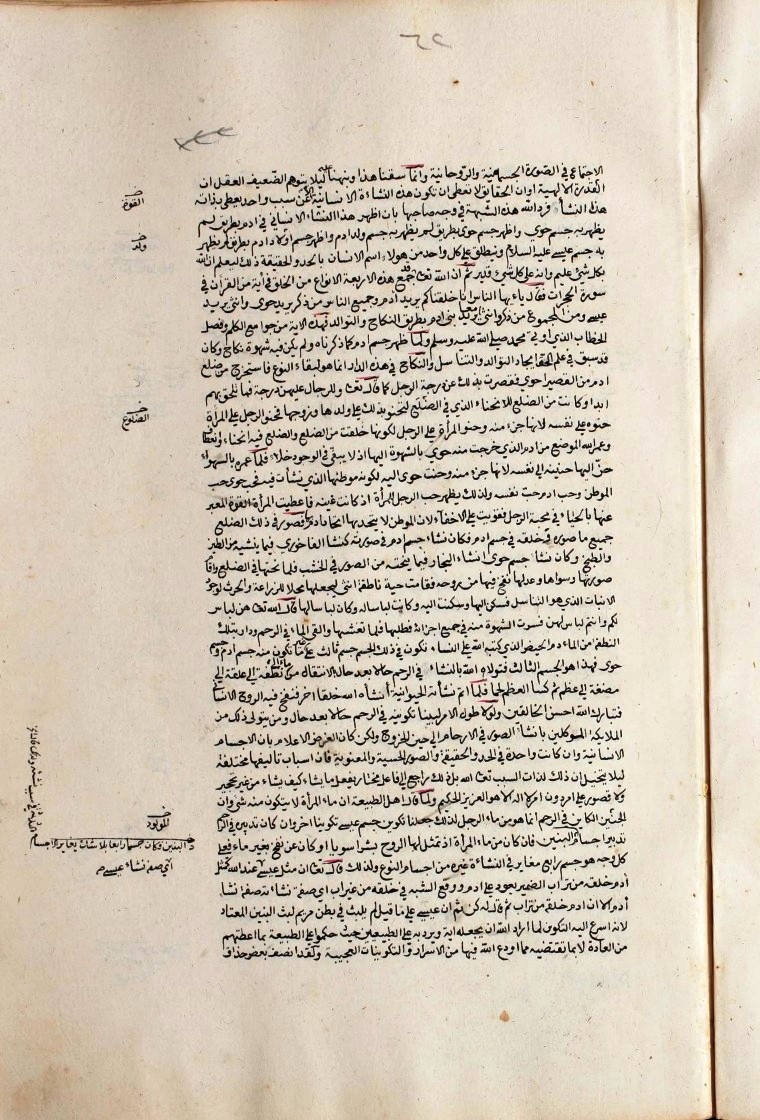 الاجتماع في الصورة الجسمية والروحانية وانما سقنا هذا ونبهنا عليه ليلا يتوهم الضعيف العقل ان
القدرة الالهية اوان الحقايق لا تعطى ان تكون هذه النشاءة الانسانية الا عن سبب واحد يعطى بذاته
هذا النشأ فرد الله هذه الشبهة في وجه صاحبها بان اظهر هذا النشاء الانساني في ادم بطريق لم
يظهر به جسم حوى واظهر جسم حوى بطريق لم يظهر به جسم ولد ادم واظهر جسم اولاد ادم بطريق لم يظهر
به جسم عيسى عليه السلام وينطلق على كل واحد من هولاء اسم الانسان بالحد والحقيقة ذلك ليعلم ان الله
بكل شئ عليم وانه على كل شئ قدير ثم ان الله تعالى قد جمع هذه الاربعة الانواع من الخلق في آية من القرآن في
سورة الحجرات فقال يا ايها الناس انا خلقناكم يريد ادم وجميع الناس من ذكر يريد حوى وانثى يريد
عيسى ومن المجموع من ذكر وانثى يريد بنى ادم بطريق النكاح والتوالد فهذه الاية من جوامع الكلم وفصل
الخطاب الذي اوتي محمد صلى الله عليه وسلم ولما ظهر جسم ادم كما ذكرناه ولم يكن فيه شهوة نكاح وكان
قد سبق في علم الحق ايجاد التوالد والتناسل والنكاح في هذه الدار انما هو لبقاء النوع فاستخرج من ضلع
ادم من القصير احوى فقصرت بذلك عن درجة الرجل كما قال تعالى وللرجال عليهن درجة فما تلحق بهم
ابدا وكانت من الضلع للانحناء الذي في الضلع لتحنو بذلك على ولدها وزوجها فحنو الرجل على المرأة
حنوه على نفسه لانها جزء منه وحنو المرأة على الرجل لكونها خلقت من الضلع والضلع فيه انحناء وانعطاف
وعمر الله الموضع من ادم الذي خرجت منه حوى بالشهوة اليها اذ لا يبقى في الوجود خلاء فلما عمره بالشهوة
حن اليها حنينه الى نفسه لانها جزء منه وحنت حوى اليه لكونه موطنها الذي نشأت فيه فحب حوى حب
الموطن وحب ادم حب نفسه ولذلك يظهر حب الرجل للمرأة اذ كانت عينه فاعطيت المرأة القوة المعبر
عنها بالحياء في محبة الرجل فقويت على الاخفاء لان الموطن لا يتحد بها اتحاد ادم بها فصور في ذلك الضلع
جميع ما صوره وخلقه في جسم ادم فكان نشاء جسم ادم في صورته كنشا الفاخوري فيما ينشيه من الطين
والطبخ وكان نشاء جسم حوى انشاء النجار فيما ينحته من الصور في الخشب فلما نحتها في الضلع واقام
صورتها وسواها وعدلها نفخ فيها من روحه فقامت حية ناطقة انثى ليجعلها محلا للزراعة والحرث لوجود
الانبات الذي هو التناسل فسكن اليها وسكنت اليه وكانت لباسا له وكان لباسا لها قال الله تعالى هن لباس
لكم وانتم لباس لهن فسرت الشهوة منه في جميع اجزائه فطلبها فلما تغشيها والقى الماء في الرحم ودار بتلك
النطفة من الماء دم الحيض الذي كتبه الله على النساء تكون في ذلك الجسم جسم ثالث على غير ما تكون منه جسم ادم وجسم
حوى فهذا هو الجسم الثالث فتولاه الله بالنشاء في الرحم حالا بعد حال بالانتقال من ماء الى نطفة الى علقة الى
مضغة الى عظم ثم كسا العظم لحما فلما اتم نشأته الحيوانية أنشأه الله خلقا اخر فنفخ فيه الروح الانسانى
فتبارك الله احسن الخالقين ولولا طول الامر لبينا تكوينه في الرحم حالا بعد حال ومن يتولى ذلك من
الملايكة الموكلين بانشاء الصور في الارحام الى حين الخروج ولكن كان الغرض الاعلام بان الاجسام
الانسانية وان كانت واحدة في الحد والحقيقة والصور الحسية والمعنوية فان اسباب تاليفها مختلفة
ليلا يتخيل ان ذلك لذات السبب تعالى الله بل ذلك راجع الى فاعل مختار يفعل ما يشاء كيف يشاء من غير تحجير
ولا قصور على امر دون امر لا اله الا هو العزيز الحكيم ولما قال اهل الطبيعة ان ماء المرأة لا يتكون منه شئ وان
الجنين الكاين في الرحم انما هو من ماء الرجل لذلك جعلنا تكوين جسم عيسى تكوينا اخر وان كان تدبيره في الرحم
تدبير اجسام البنين فان كان من ماء المرأة اذ تمثل لها الروح بشرا سويا او كان عن نفخ بغير ماء فعلى
كل وجه هو جسم رابع مغاير في النشاءة غيره من اجسام النوع ولذلك قال تعالى ان مثل عيسى عند الله كمثل
أدم خلقه من تراب الضمير يعود على ادم ووقع الشبه في خلقه من غير اب اي صفة نشاءته صفة نشاء
أدم الا ان ادم خلقه من تراب ثم قال له كن ثم ان عيسى على ما قيل لم يلبث في بطن مريم لبث البنين المعتاد
لانه اسرع اليه التكوين لما أراد الله ان يجعله اية ويرد به على الطبيعيين حيث حكموا على الطبيعة بما اعطتهم
من العادة لا بما تقتضيه مما اودع الله فيها من الاسرار والتكوينات العجيبة ولقد انصف بعض حذاق
القوة
ولد
الضلوع
المولود
البنين وكان جسما رابعا بلا شك يغاير الاجسام
اي صفة نشاء عيسى